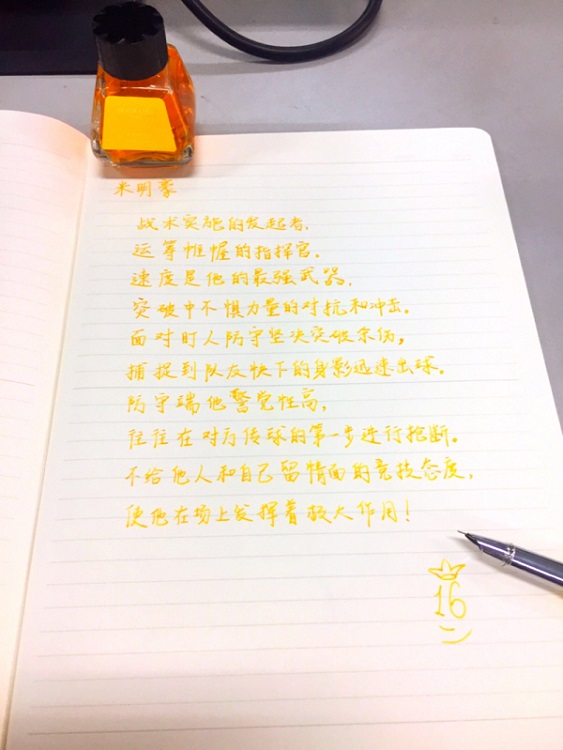 米明豪
战术实施的发起者,
运筹帷幄的指挥官。
速度是他的最强武器,
突破中不惧力量的对抗和冲击。
面对盯人防守坚决突破
捕捉到队友快下的身影迅速出球。
防守端他警觉性高,
往往在对方传球的第一步进行抢断。
不给他人和自己留情面的竞技态度,
使他在场上发挥着极大作用!
16